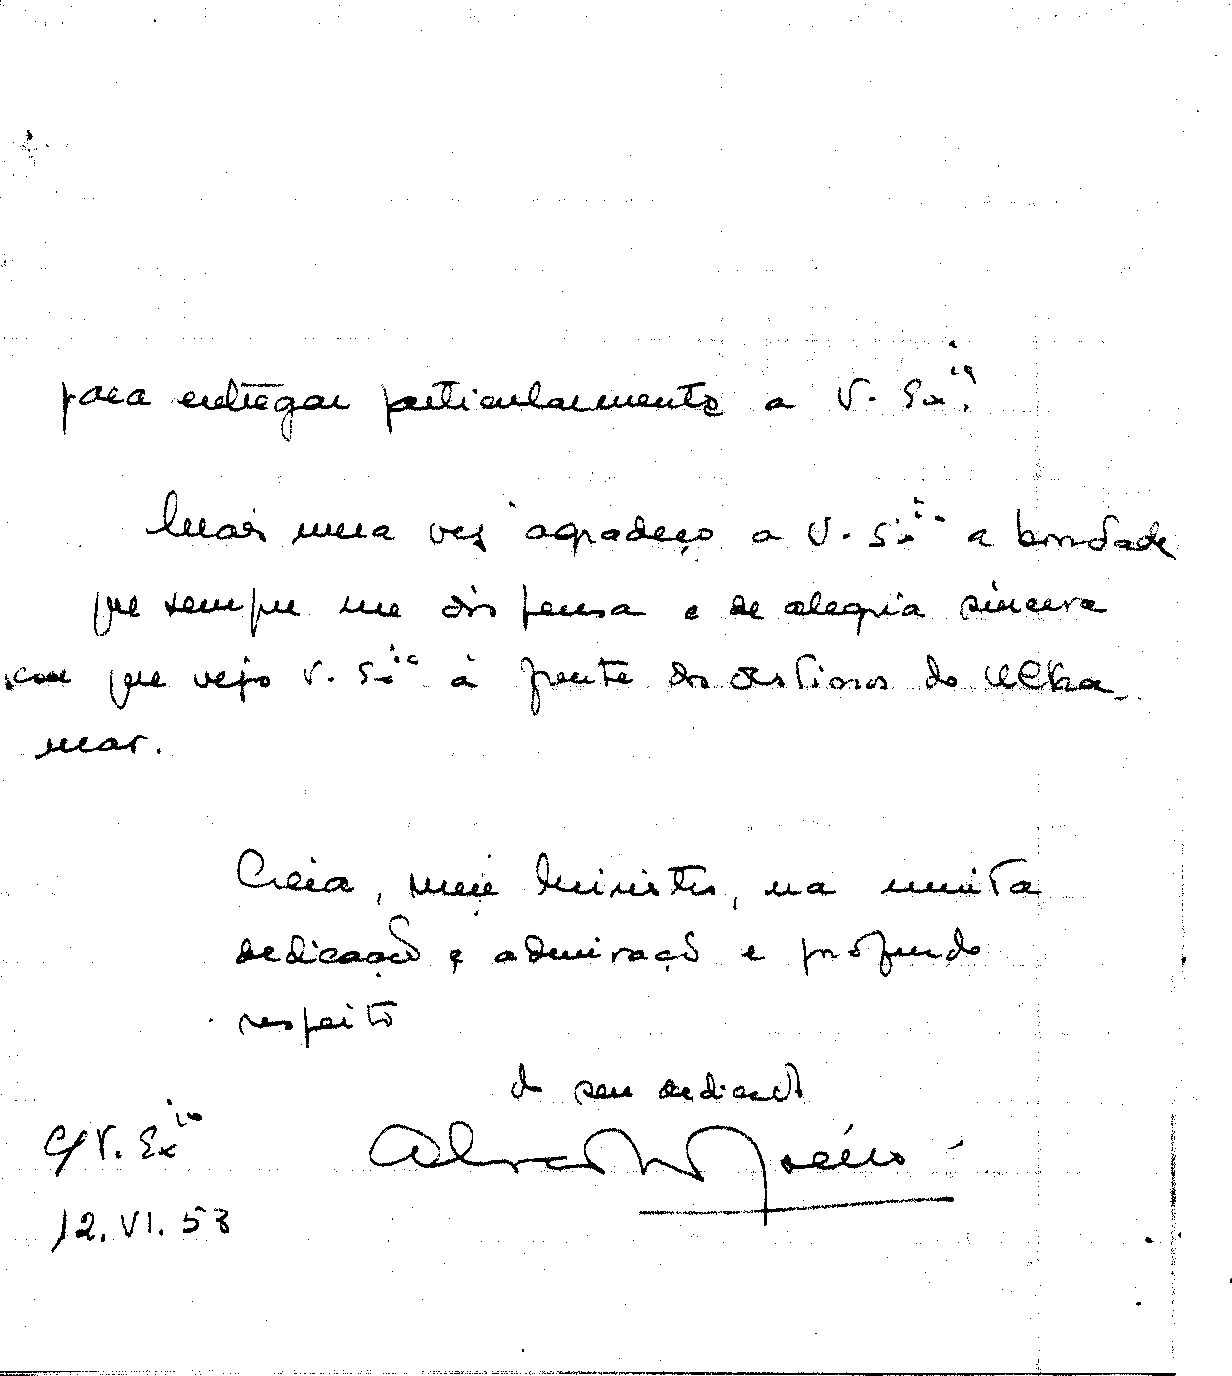 para entregar particularmente a V. Exia.
Mais uma vez agradeço a V. Exia a bondade
que sempre me dispensa e de alegria sincera
com que vejo V. Exia à frente dos destinos do Ultra-
mar.
Creia, meu Ministro, na muita
dedicação e admiração e profundo
respeito
do seu dedicado
C/ V. Exia
12. VI. 53